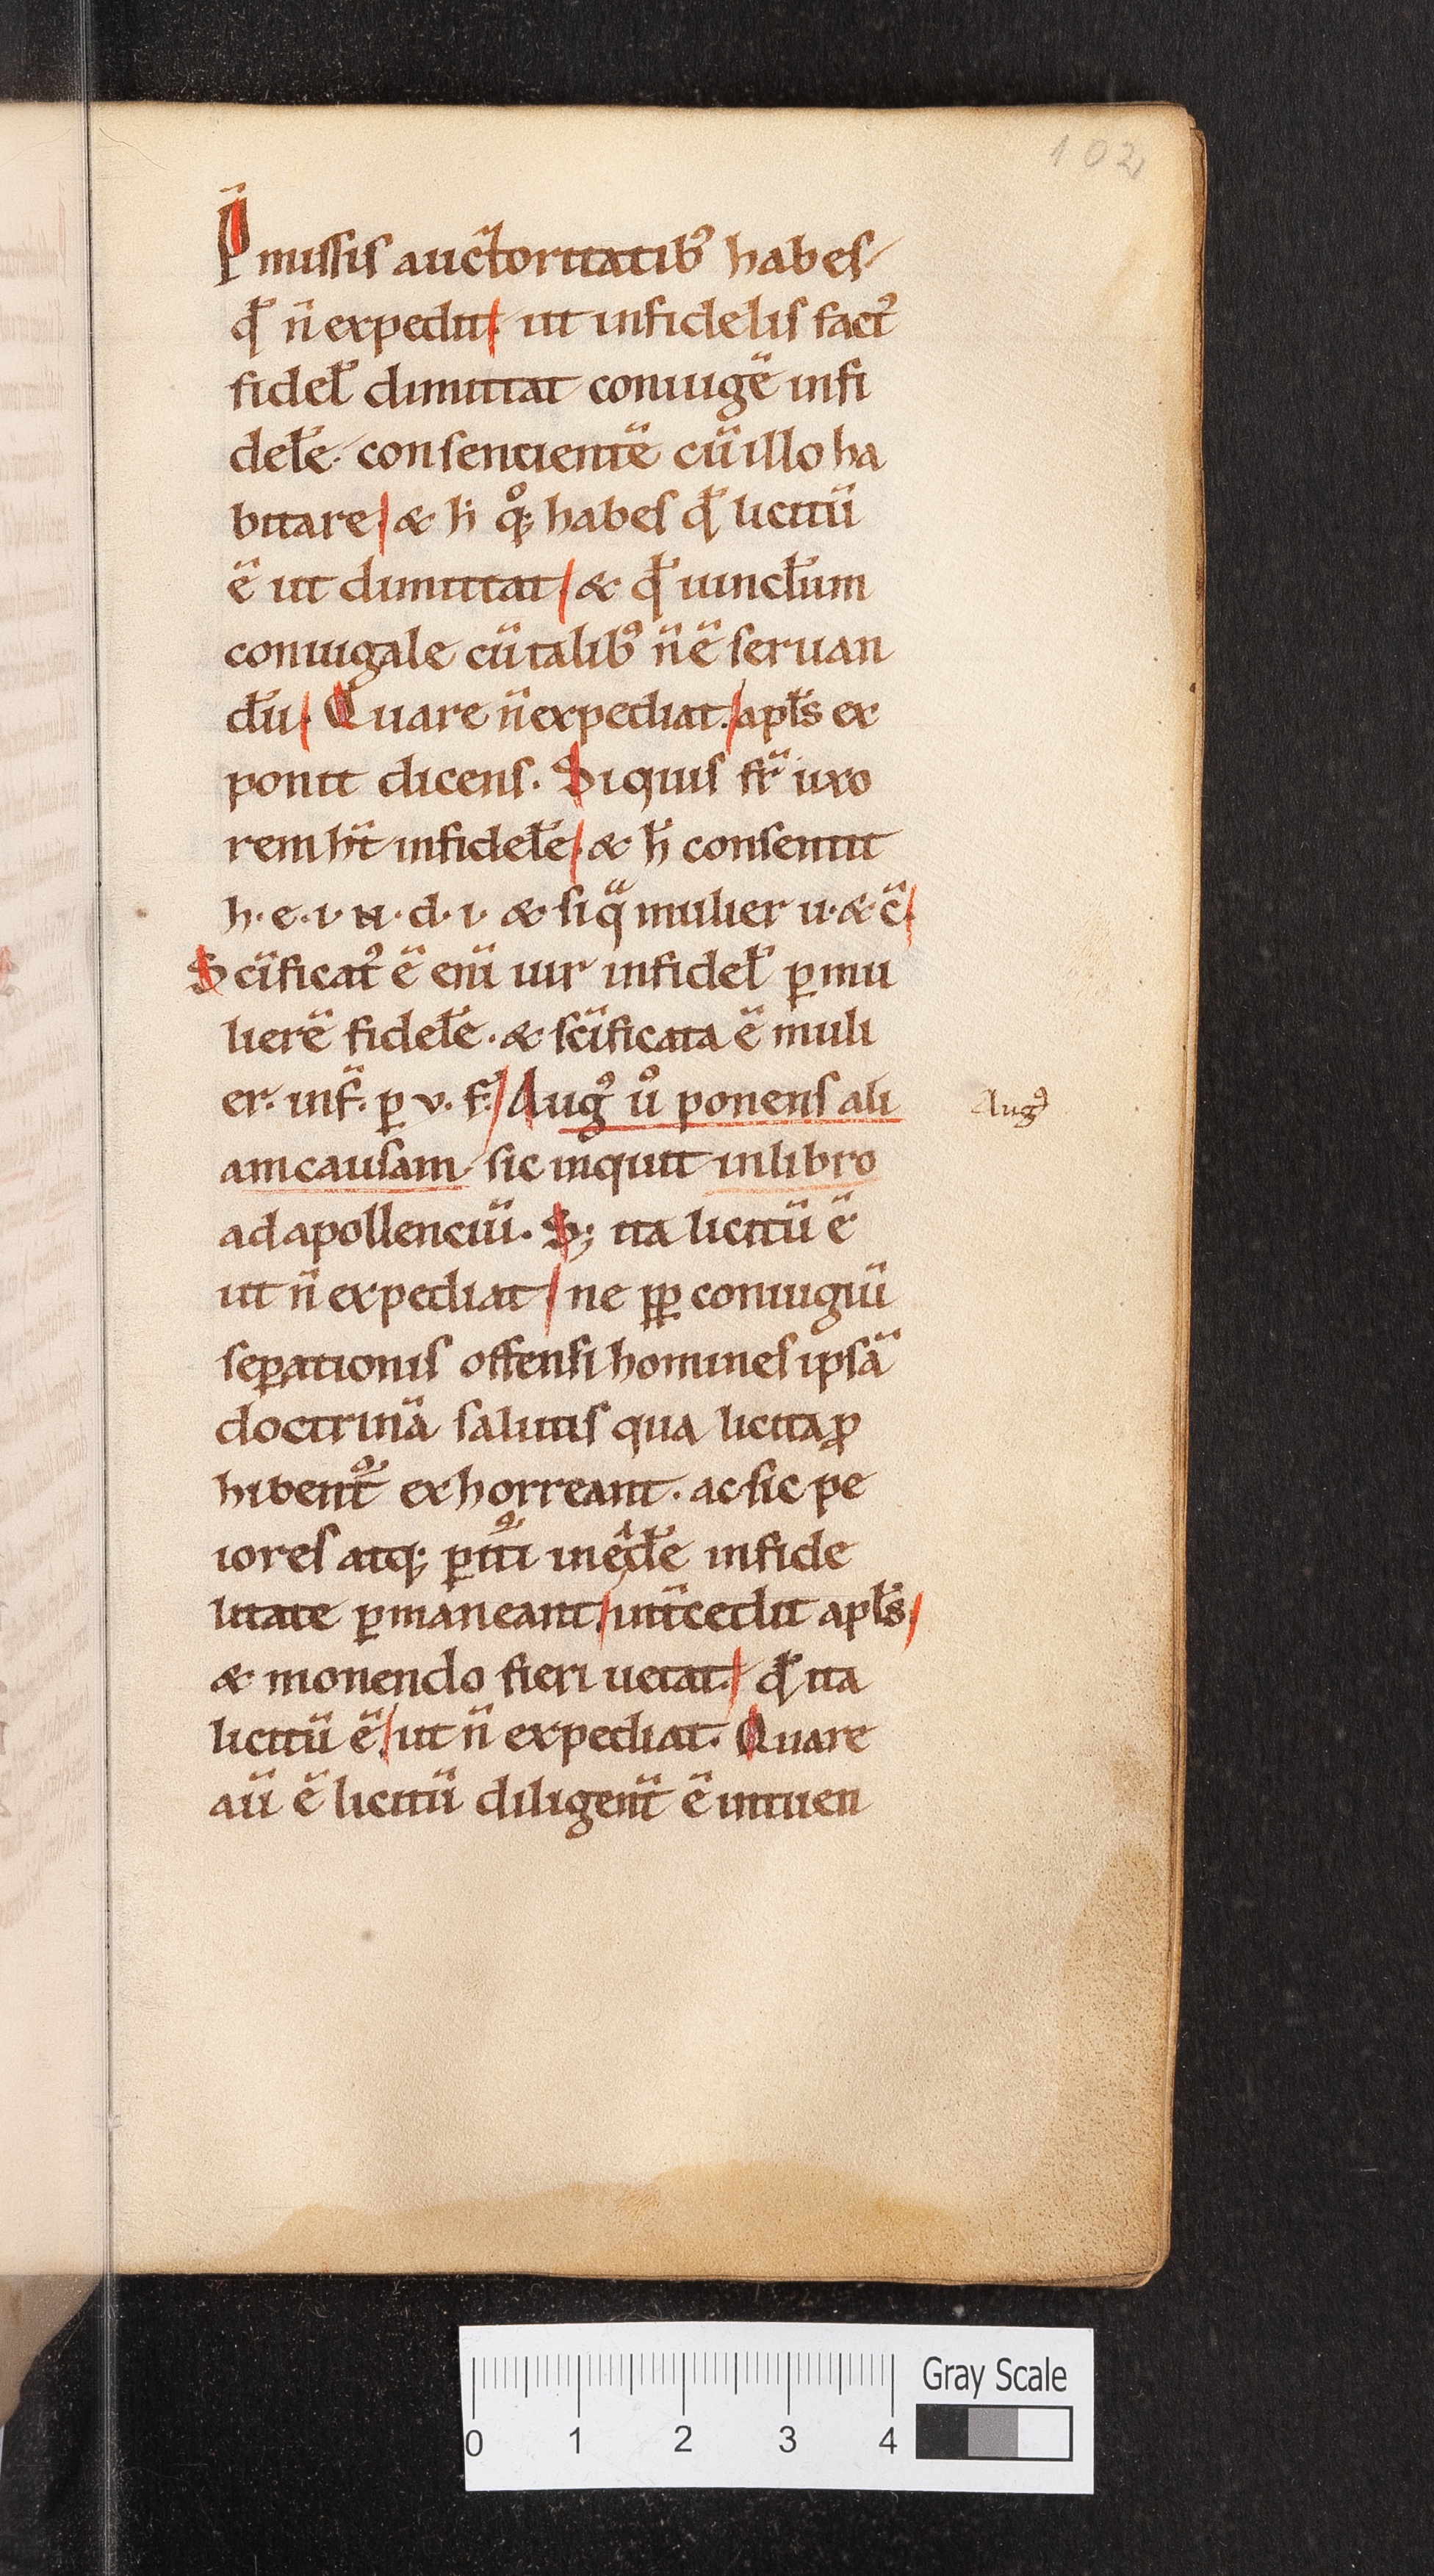 102
P̄missis auctoritatibꝰ habes
qđ n̄ expedit ut infidelis factꝰ
fidel̄ dimittat coniugē infi
del̄e consencientē cū illo ha
bitare & h̄ qͦꝫ habes qđ licitū
ē ut dimittat & qđ uinc̄lum
coniugale cū talibꝰ n̄ ē seruan
d̄u. Quare n̄ expediat. apl̄s ex
ponit dicens. Siquis fr̄ uxo
rem h̄t infidel̄e & h̄ consentit
h. e. i. n. d. i. & siq̄ mulier u. & c̄
Sc̄ificatꝰ ē eni̅ uir infidel̄ ꝑ mu
lierē fidel̄e. & sc̄ificata ē muli
er. inf̄. ꝑ v. f. Augꝰ uͦ ponens ali
Augꝰ
am causam sic inquit in libro
ad apollenciū. Sꝫ ita licitū ē
ut n̄ expediat ne ꝓpꝑ coniugiū
seꝑationis offensi homines ipsā
doctrinā salutis qua licita ꝓ
hibent᷑ exhorreant. ac sic pe
iores atqꝫ ꝑit᷑i in ead̄e infide
litate ꝑmaneant. int̄cedit apl̄s
& monendo fieri uetat. qđ ita
licitū ē. ut n̄ expediat. Quare
aū ē licitū diligent̄ ē intuen
Gray Scale
0 1 2 3 4